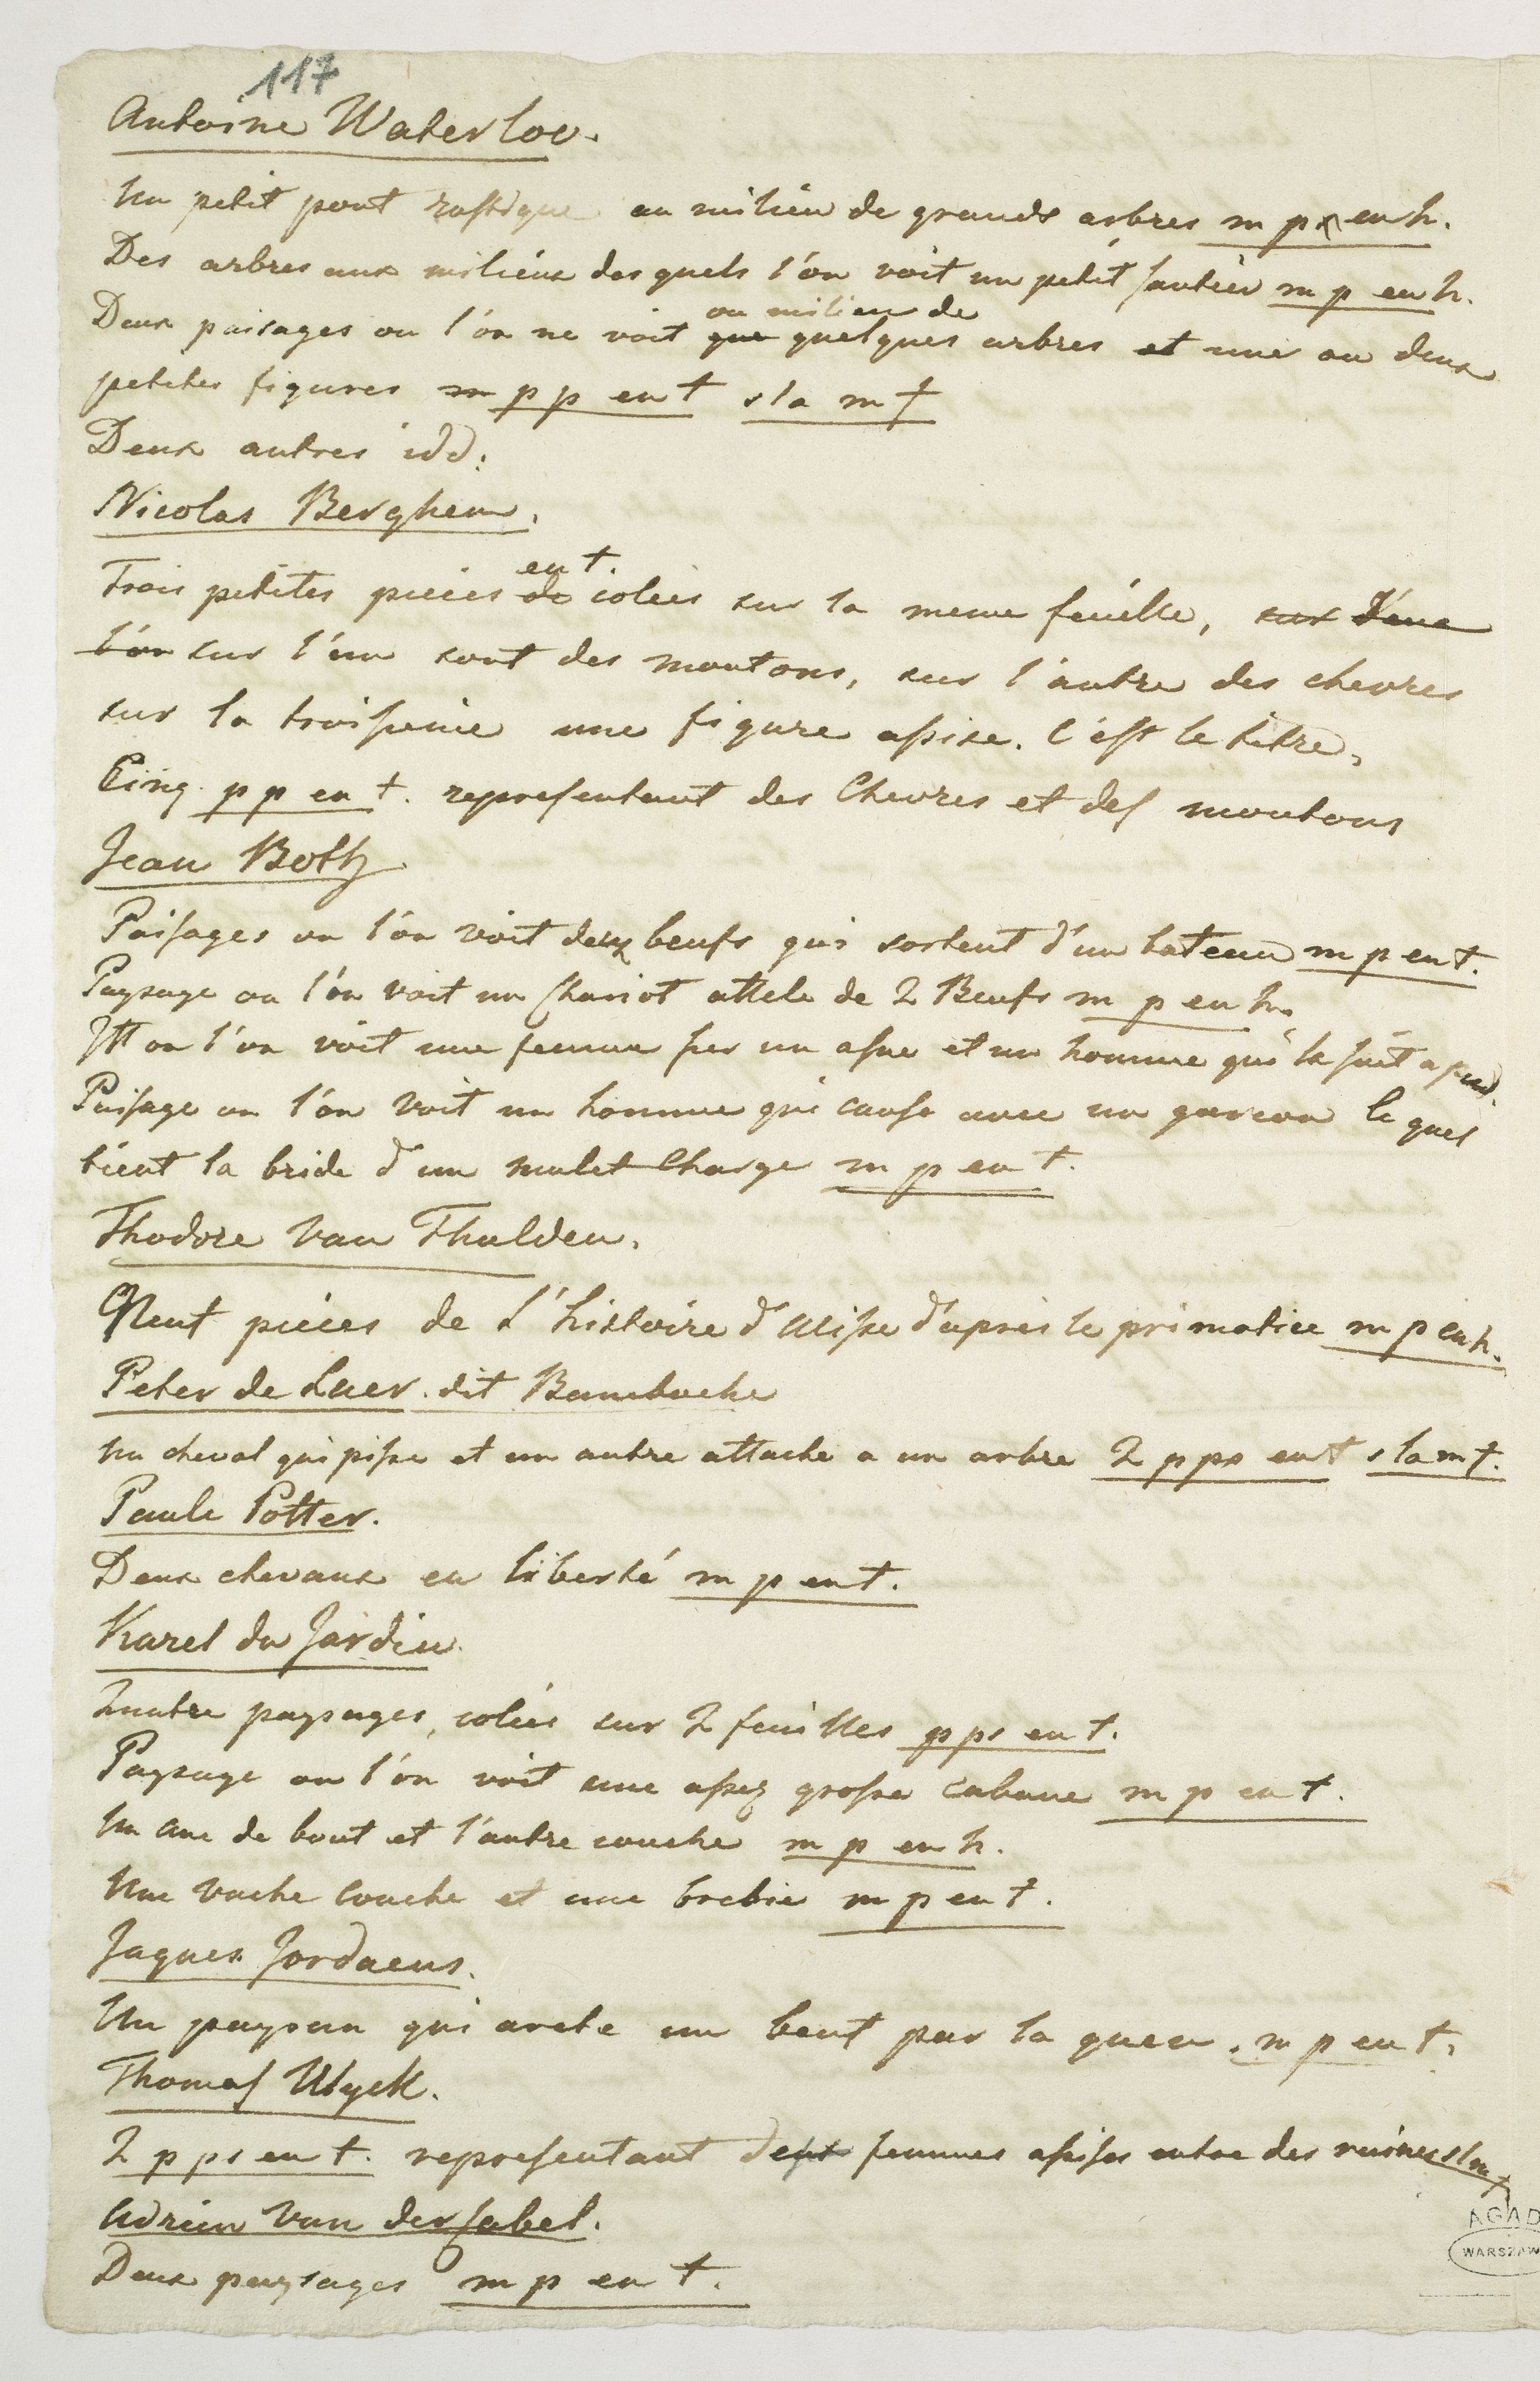 117
Antoine Waterloo.
Un petit pont rustique au milieu de grands arbres m p en h.
Des arbres aux milieux des quels l'on voit un petit santier m p en h.
au milieu de
Deux paisages ou l'on ne voit que quelques arbres et une ou deux
petites figures m p p en t s la m f
Deux autres idd:
Nicolas Berghem.
en t.
Trois petites pieces de colees sur la meme feuille, sur l'une
l'on sur l'un sont des moutons, sur l'autre des chevres
sur la troisieme une figure assise. C'est le titre,
Cinq p p en t. representant des Chevres et des moutons
Jean Both
Paisages ou l'on voit deux beufs qui sortent d'un bateau m p en t.
Paysage ou l'on voit un Chariot attele de 2 Beufs m p en h.
Itt ou l'on voit une femme sur un asne et un homme qui la suit a pied.
Paisage ou l'on voit un homme qui cause avec un garcon le quel
tient la bride d'un mulet Charge m p en t.
Thodore Van Thulden.
Neuf pieces de L'histoire d'Ulisse d'apres le primatice m p en h.
Peter de Laer. dit Bamboche
Un cheval qui pisse et un autre attache a un arbre 2 p ps en t s la m f.
Paule Potter.
Deux chevaux en liberté m p en t.
Karel du Jardin
Quatre paysages, colées sur 2 feuilles p ps en t.
Paysage ou l'on voit une assez grosse cabane m p en t.
Un ane de bout et l'autre couche m p en h.
Une vache couche et une brebie m p en t.
Jaques Jordaens.
Un paysan qui arete un beuf par la queu. m p en t.
Thomas Wyck.
2 p ps en t. representant deux femmes assises entre des ruines s la m f
Adrien Van der Cabel.
Deux paysages m p en t.
AGAD
WARSZAW